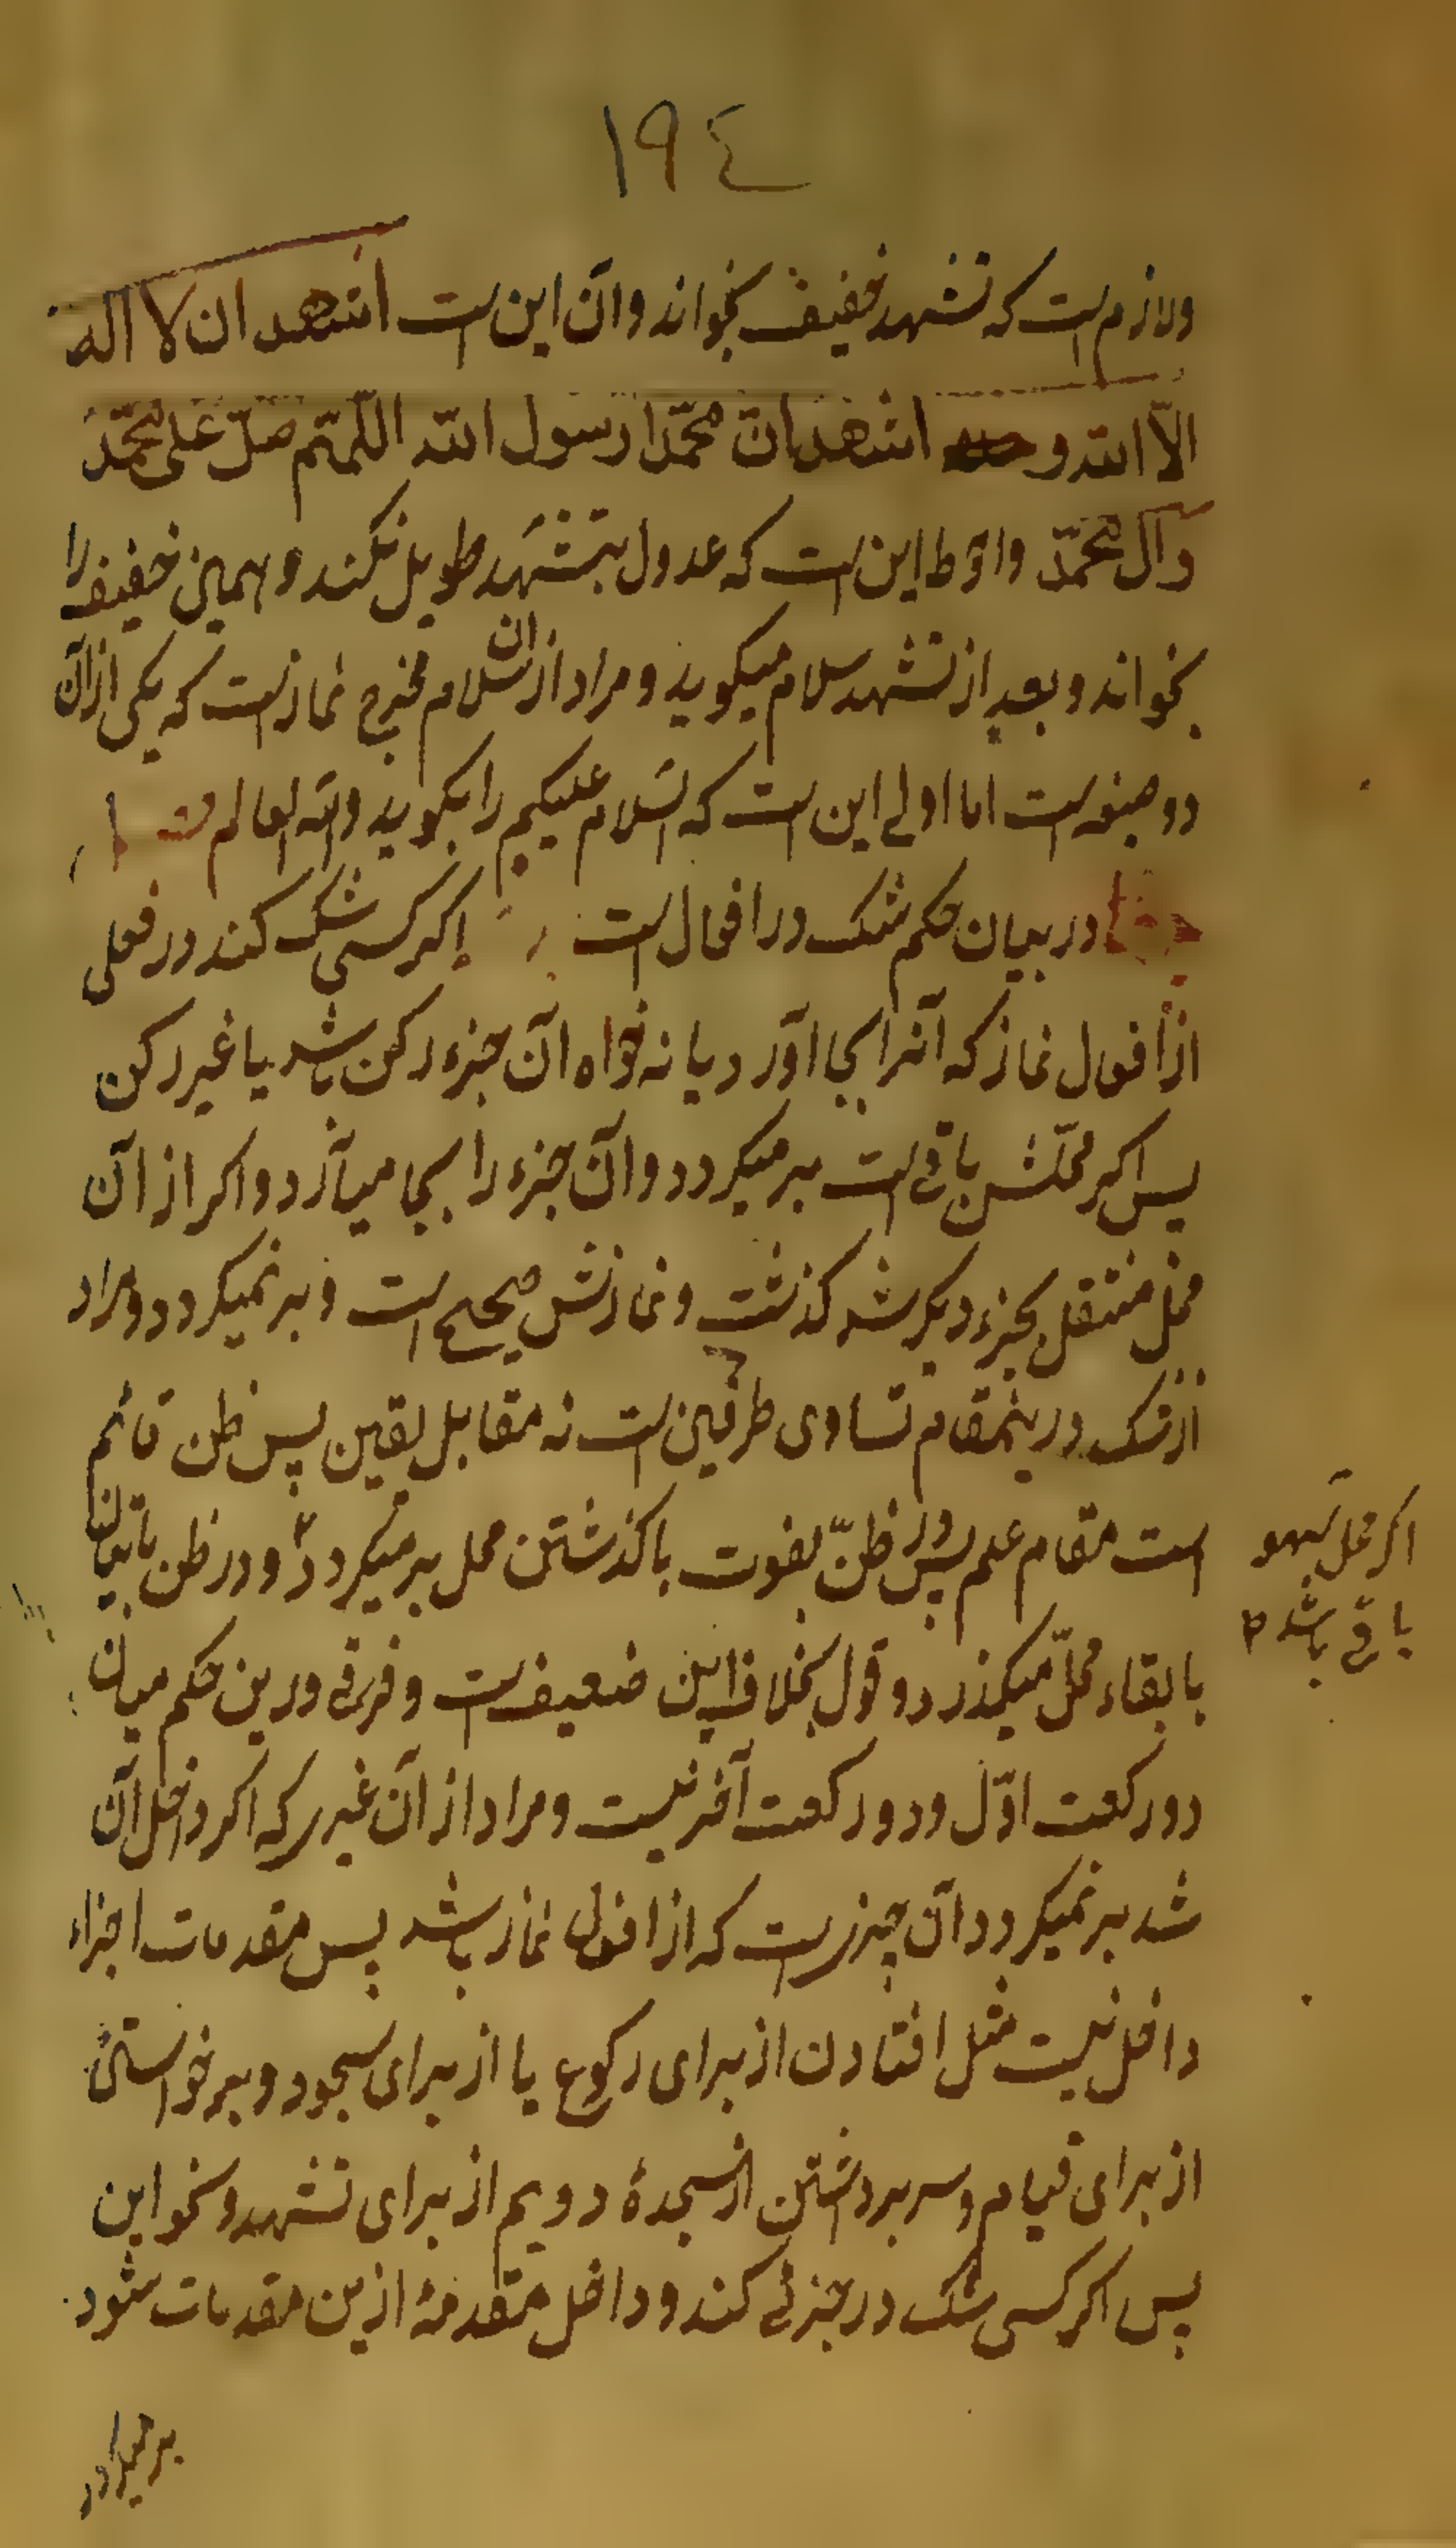 ١٩٤
ولازم است که تشهد خفیف بخواند وآن این است اشهد ان لا اله
الّا الله و اشهد انّ محمّدا رسول الله اللّهمّ صلّ علی محمّد
وآل محمّد واحوط این است که عدول بتشهّد طویل نکند و همین خفیف را
بخواند و بعد از تشهد سلام میکوید و مراد از ان سلام مخرج نماز است که یکی از آن
دو صیغه است اما اولی این است که السّلام علیکم را بکوید والله العالم
در بیان حکم شک در افعال است اکر کسی شک کند در فعلی
از افعال نماز که آنرا بجا آورد یا نه خواه آن جزء رکن باشد یا غیر رکن
پس اکر محلّش باقی است بر میکردد و آن جزء را بجا میآرد و اکر از آن
محل منتقل بجزء دیکر شد کذشت و نمازش صحیح است و بر نمیکردد و مراد
از شک درینمقام تساوی طرفین است نه مقابل یقین پس ظن قائم
است مقام علم پس در ظنّ بفوت با کذشتن محل بر میکردد و در ظن باتیان
اکر محل سهو
باقی باشد
با بقاء محلّ میکذرد و قول بخلاف این ضعیف است و فرقی درین حکم میان
دو رکعت اوّل و دو رکعت آخر نیست و مراد از آن غیر که اکر داخل آن
شد بر نمیکردد آن چیزیست که از افعال نماز باشد پس مقدمات اجزاء
داخل نیست مثل افتادن از برای رکوع یا از برای سجود و برخواستن
از برای قیام و سر برداشتن از سجدهٔ دویم از برای تشهد و نحو این
پس اکر کسی شک در جزئی کند و داخل مقدمهٔ ازین مقدمات شود